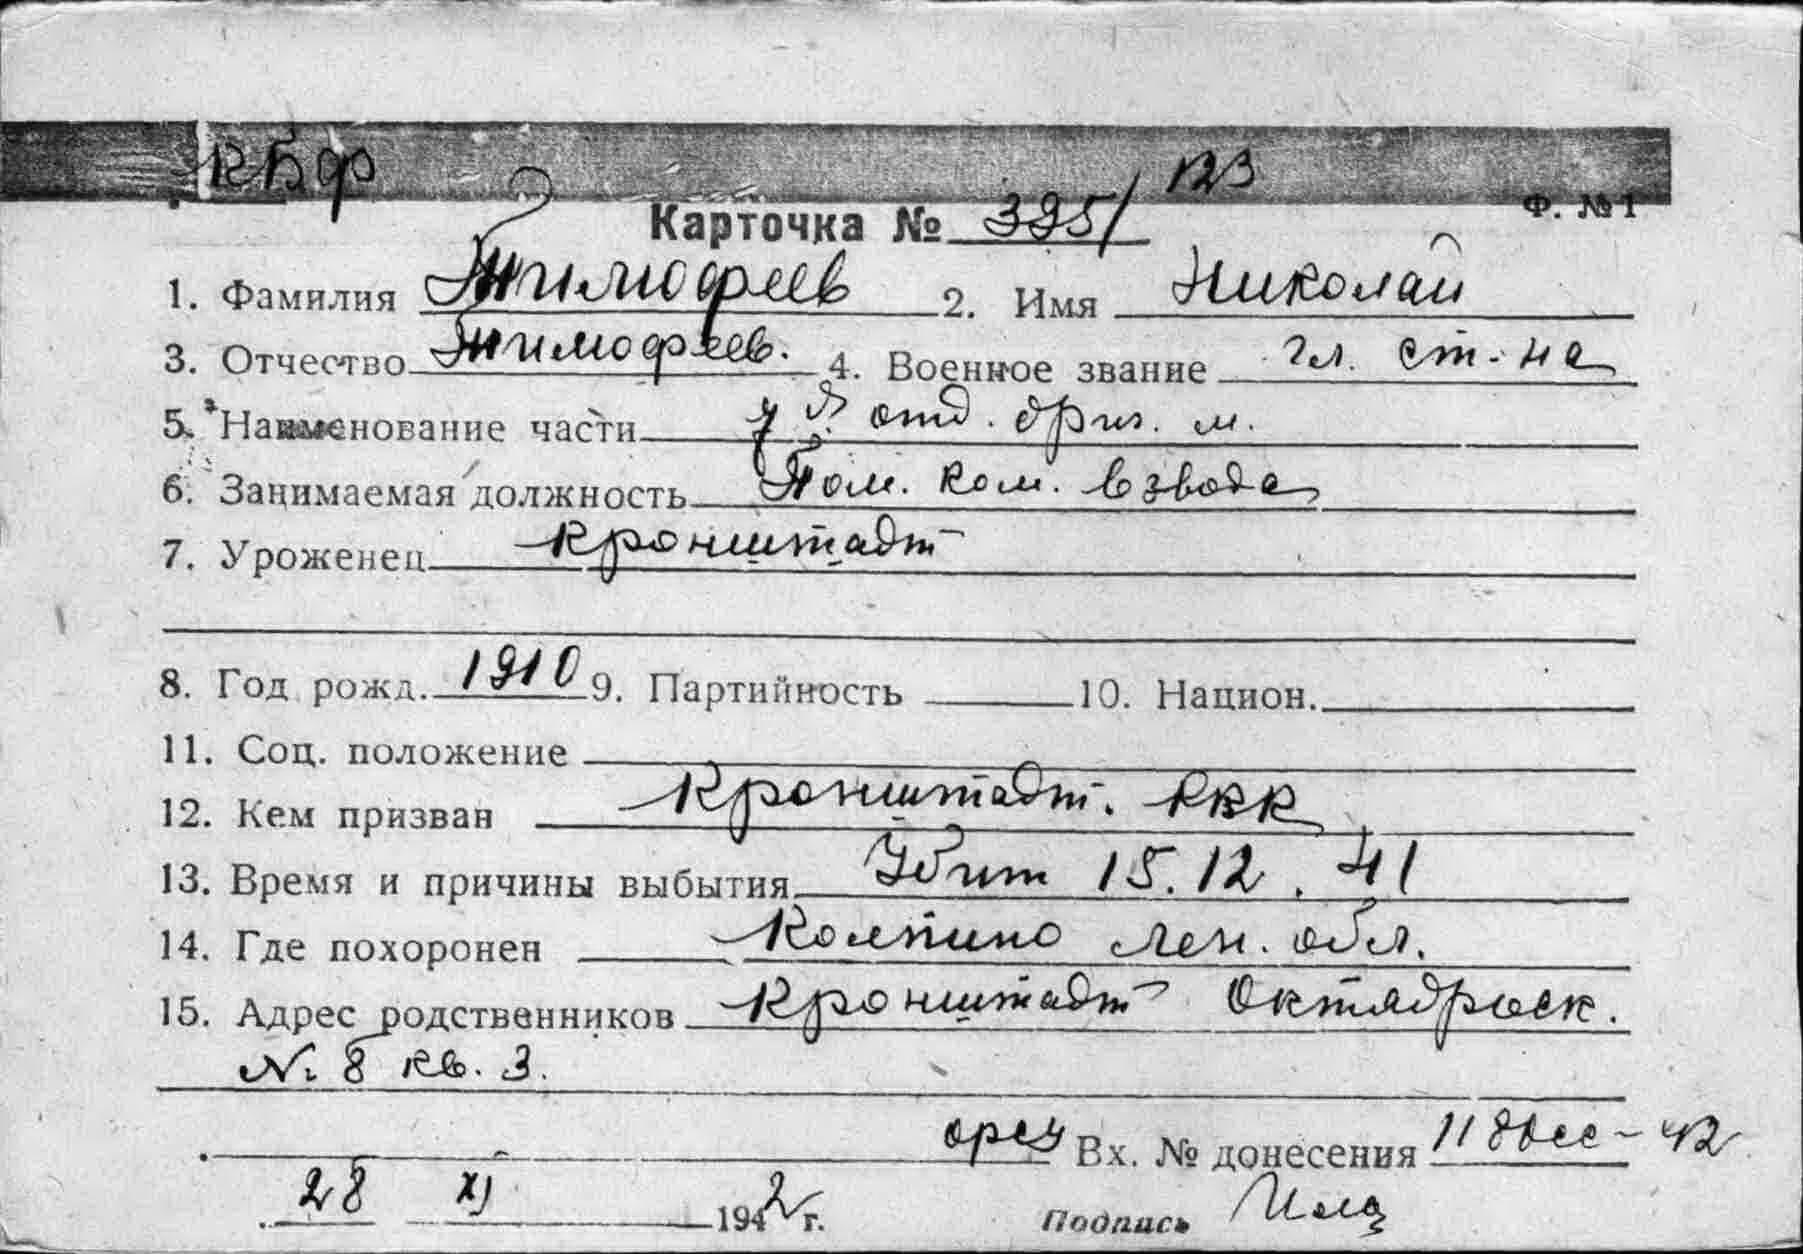 КБФ
123
Ф. №1
Карточка № 3951
1. Фамилия Тимофеев 2. Имя Николай
3. Отчество Тимофеев. 4. Военное звание гл. ст-на
5. Наименование части отд. бриг. м.
6. Занимаемая должность Пом. ком. взвода
7. Уроженец Кронштадт
8. Год рожд. 1910 9. Партийность 10. Национ.
11. Соц. положение
12. Кем призван Кронштадт. РВК
13. Время и причины выбытия Убит 15.12.41
14. Где похоронен Колпино Лен. обл.
15. Адрес родственников Кронштадт Октябрьск.
№ 8 кв. 3.
Вх. № донесения
28 XI 1942 г. Подпись